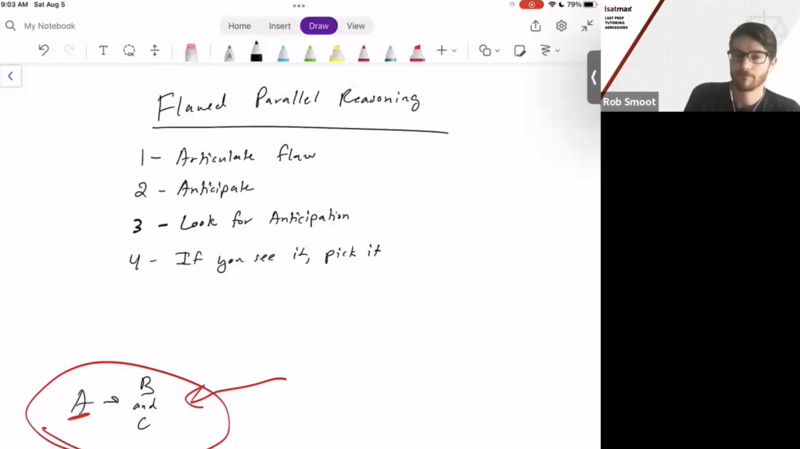 9:03 AM Sat Aug 5
79%
My Notebook
Home Insert Draw View
lsatmax
LSAT PREP
TUTORING
ADMISSIONS
Rob Smoot
Flawed Parallel Reasoning
1 - Articulate flaw
2 - Anticipate
3 - Look for Anticipation
4 - If you see it, pick it
B
A → and
C